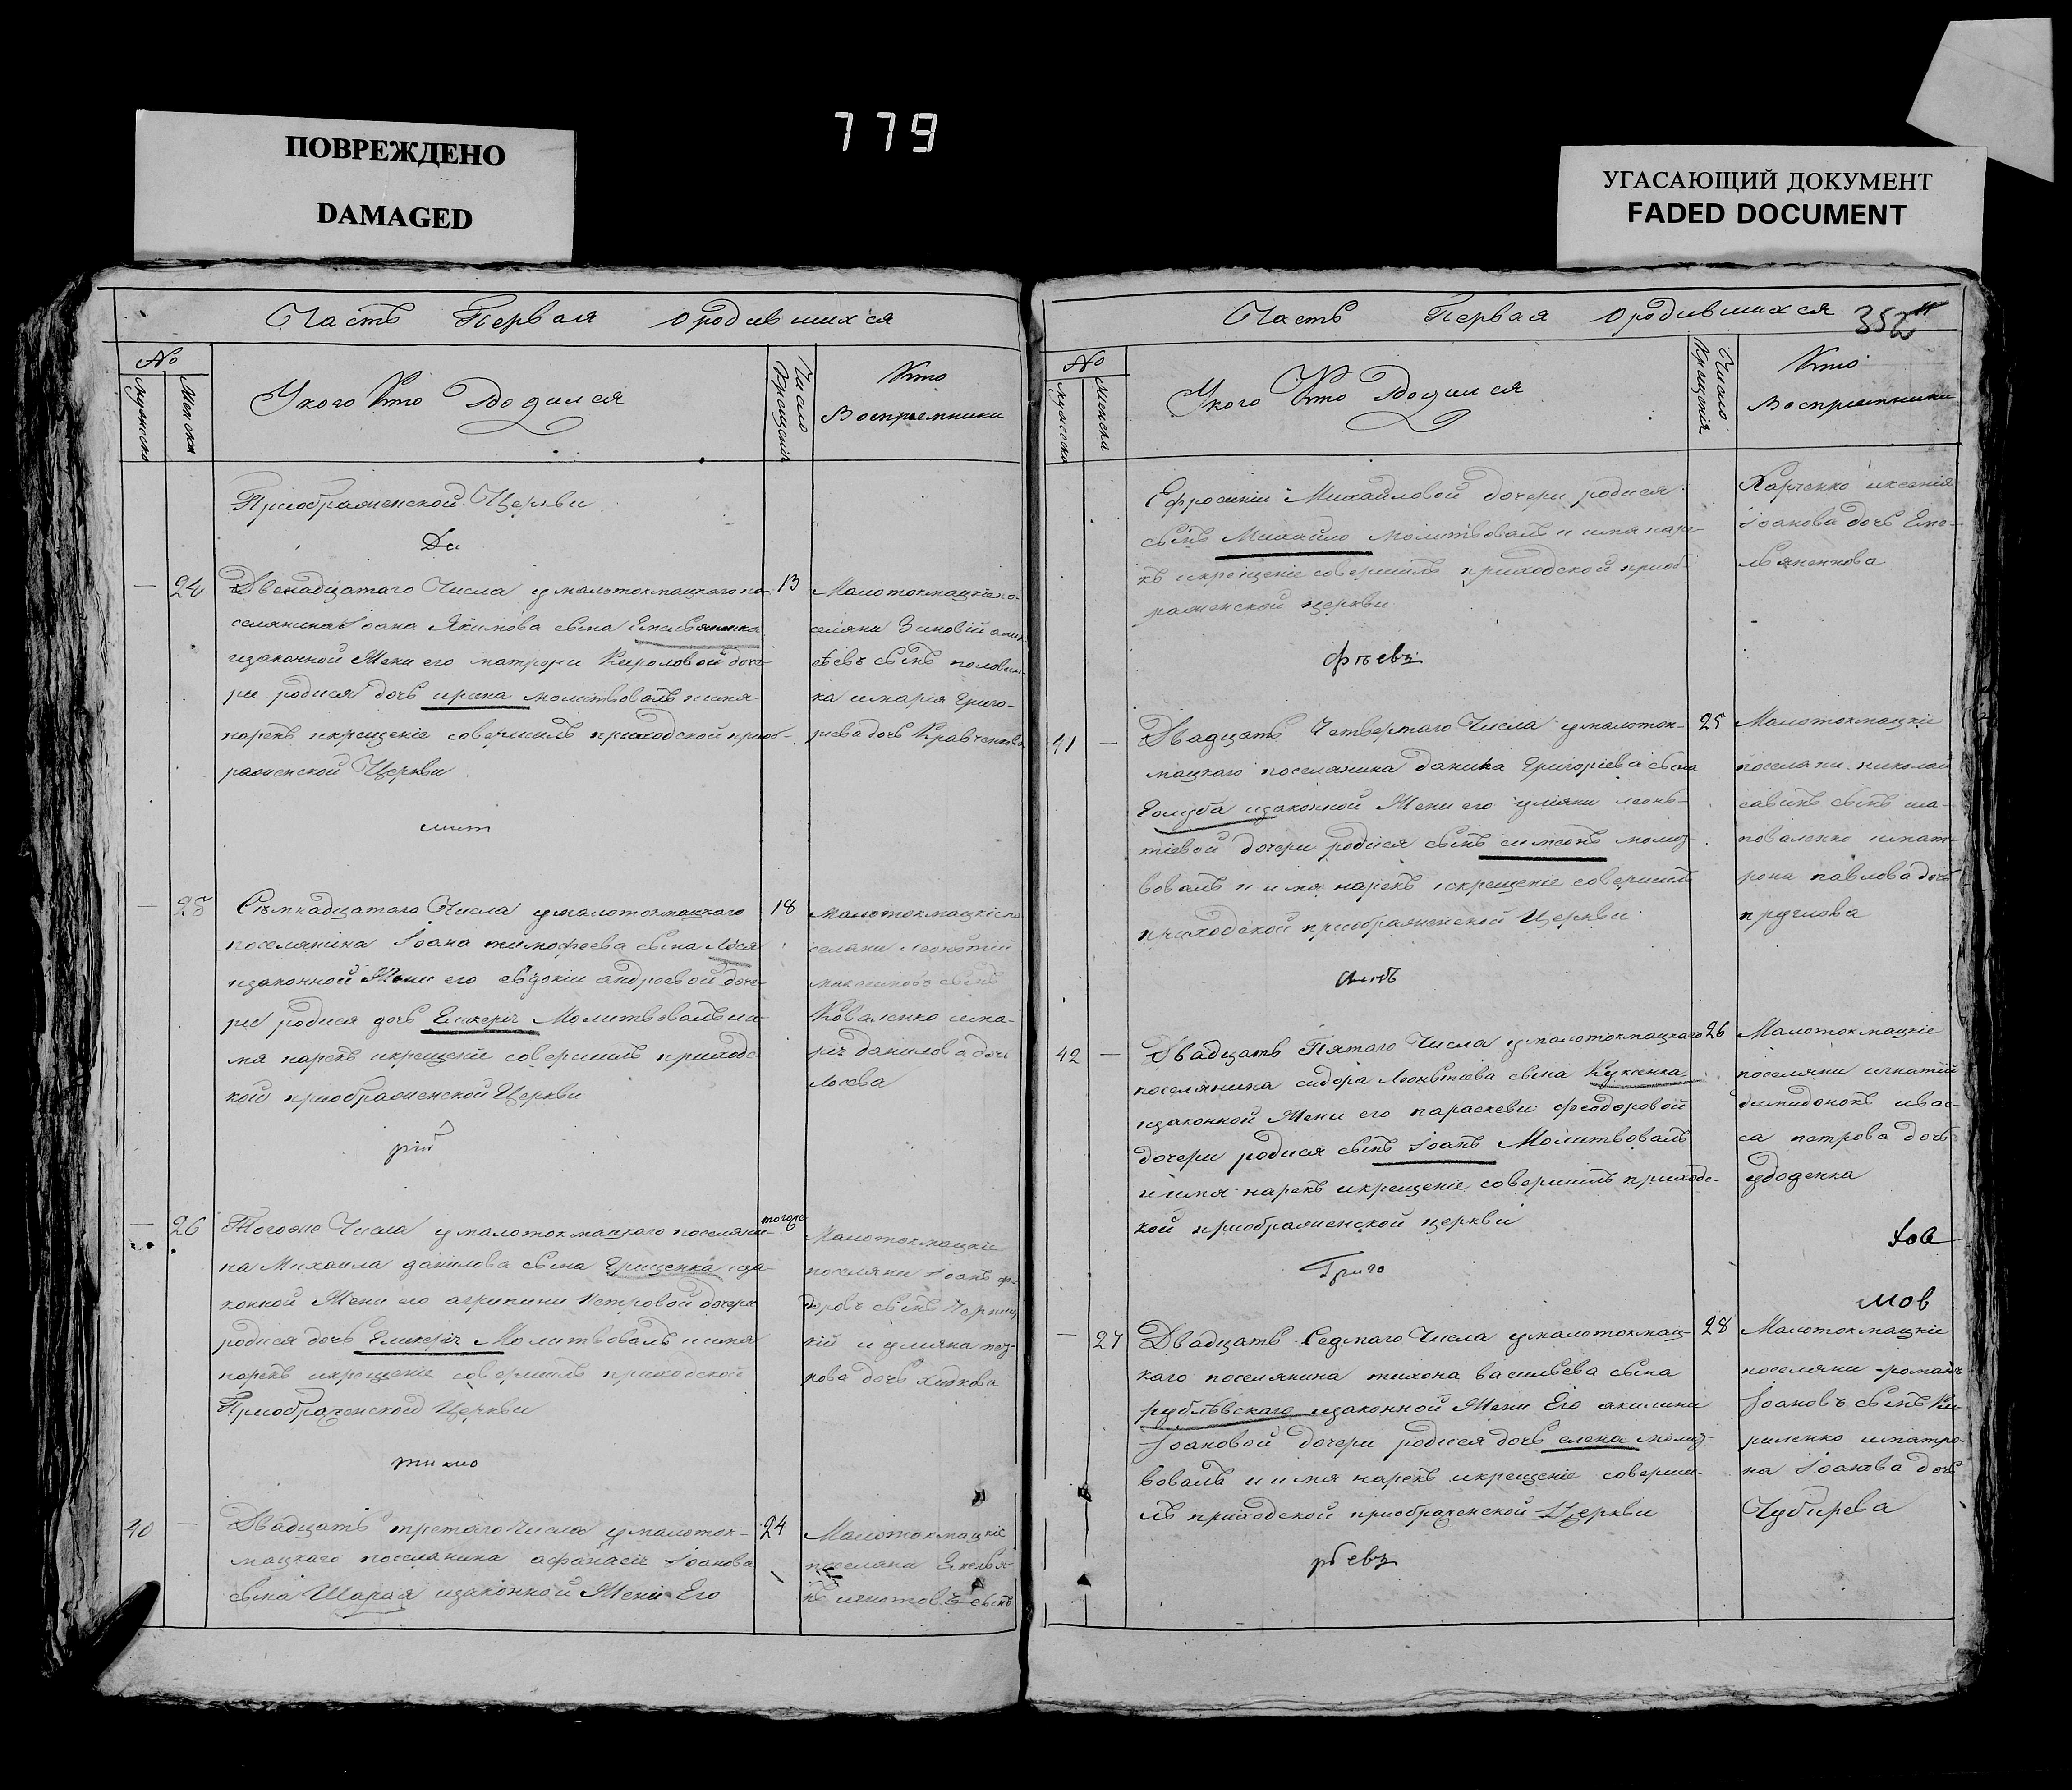 779
ПОВРЕЖДЕНО
DAMAGED
УГАСАЮЩИЙ ДОКУМЕНТ
FADED DOCUMENT
Часть Первая ородившихся
№
Мужеска
Женска
Укого Кто Родился
Число Крещенія
Кто
Воспріемники
Приображенской Церкви
Де
24
Двенадцатаго Числа умалотокмацкаго по-
селянина Іоана Якимова сына Емельяненка
изаконной Жени его матрони Кириловой доче-
ри родися дочь ирина молитвовалъ иимя
нарекъ икрещеніе совершилъ приходской приоб-
раженской Церкви
13
Малотокмацкіе по-
селяни Зиновій
сынъ половин-
ка имарія Григо-
риева дочь Кравченкова
мит
25
Семнадцатаго Числа умалотокмацкаго
поселянина Іоана тимофеева сына Лося
изаконной Жени его евдокіи андреевой доче-
ри родися дочь Гликерія Молитвовалъ иі-
мя нарекъ икрещеніе совершилъ приходс-
кой приображенской Церкви
18
Малотокмацкіе по
селяни леонтій
максимовъ сынъ
Коваленко има-
рія данилова дочь
Лосева
рій
26
Тогоже Числа умалотокмацкаго поселяни-
на Михаила данилова сына Грищенка иза-
конной Жени его агрипини Петровой дочери
родися дочь Гликерія Молитвовалъ иимя
нарекъ икрещеніе совершилъ приходской
Приображенской Церкви
тогоже
Малотокмацкіе
поселяни Іоанъ фе-
доровъ сынъ Черниц-
кій и уляна
дочь
40
Двадцать третаго Числа умалоток-
мацкаго поселянина афанасія Іоанова
сына Шарая изаконной Жени Его
24
Малотокмацкіе
поселяна Емелья-
сынъ
Часть Первая ородившихся
352
№
Мужеска
Женска
Укого Кто Родился
Число Крещенія
Кто
Воспріемники
Ефросиніи Михайловой дочери родися
сынъ Михайло молитвовалъ и имя наре-
къ икрещеніе совершилъ приходской приоб-
раженской церкви
Харченко иксенія
Іоанова дочь Еме-
льяненкова
фѣевъ
41
Двадцать Четвертаго Числа умалоток-
мацкаго поселянина данила Григоріева сына
Голуба изаконной Жени его уліяни леонь-
тіевой дочери родися сынъ симеонъ молит-
вовалъ и имя нарекъ икрещеніе совершилъ
приходской приображенской Церкви
25
Малотокмацкіе
поселяни николай
савинъ сынъ ша-
поваленко имат-
рона павлова дочь
круглова
42
Двадцать Пятаго Числа умалотокмацкаго
поселянина сидора Леонтіева сына Куксенка
изаконной Жени его параскеви феодоровой
дочери родися сынъ Іоанъ Молитвовалъ
иимя нарекъ икрещеніе совершилъ приходс-
кой приображенской церкви
26
Малотокмацкіе
поселяни игнатій
ивас-
са петрова дочь
удоденка
Григо
мов
27
Двадцать Седмаго Числа умалотокмац-
каго поселянина тихона васильева сына
рублѣвскаго изаконной Жени Его акилини
Іоановой дочери родися дочь елена молит-
вовалъ иимя нарекъ икрещеніе соверши-
лъ приходской приображенской Церкви
28
Малотокмацкіе
поселяни романъ
Іоановъ сынъ Ки-
риленко иматро-
на Іоанова дочь
Чубирева
рѣевъ